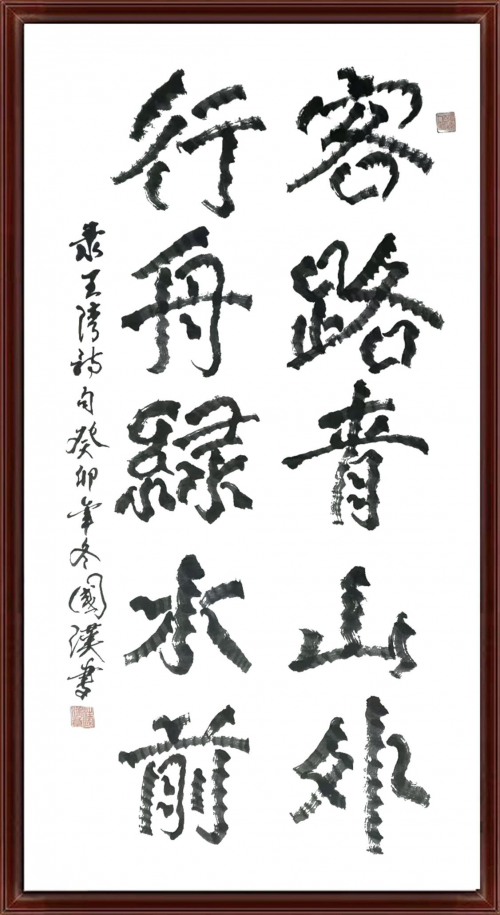 客路青山外
行舟綠水前
录王湾詩句癸卯年冬國漢書